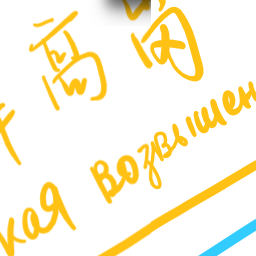 高岗
кая возвышен